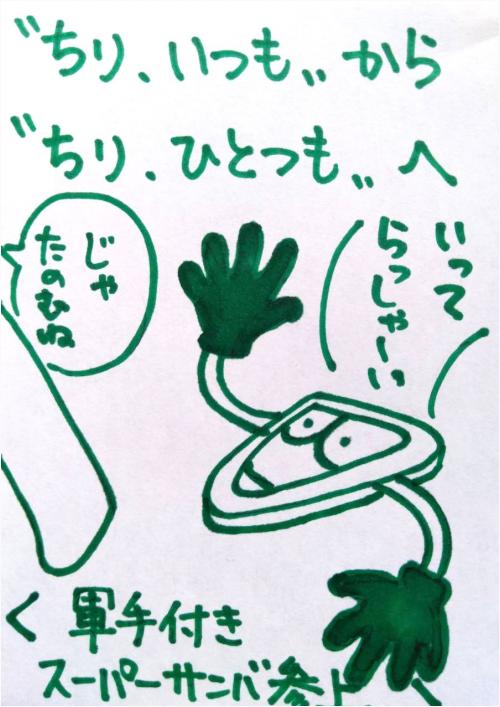 〝ちり、いつも〟から
〝ちり、ひとつも〟へ
いって
らっしゃーい
じゃ
たのむね
く 軍手付き
スーパーサンバ参上